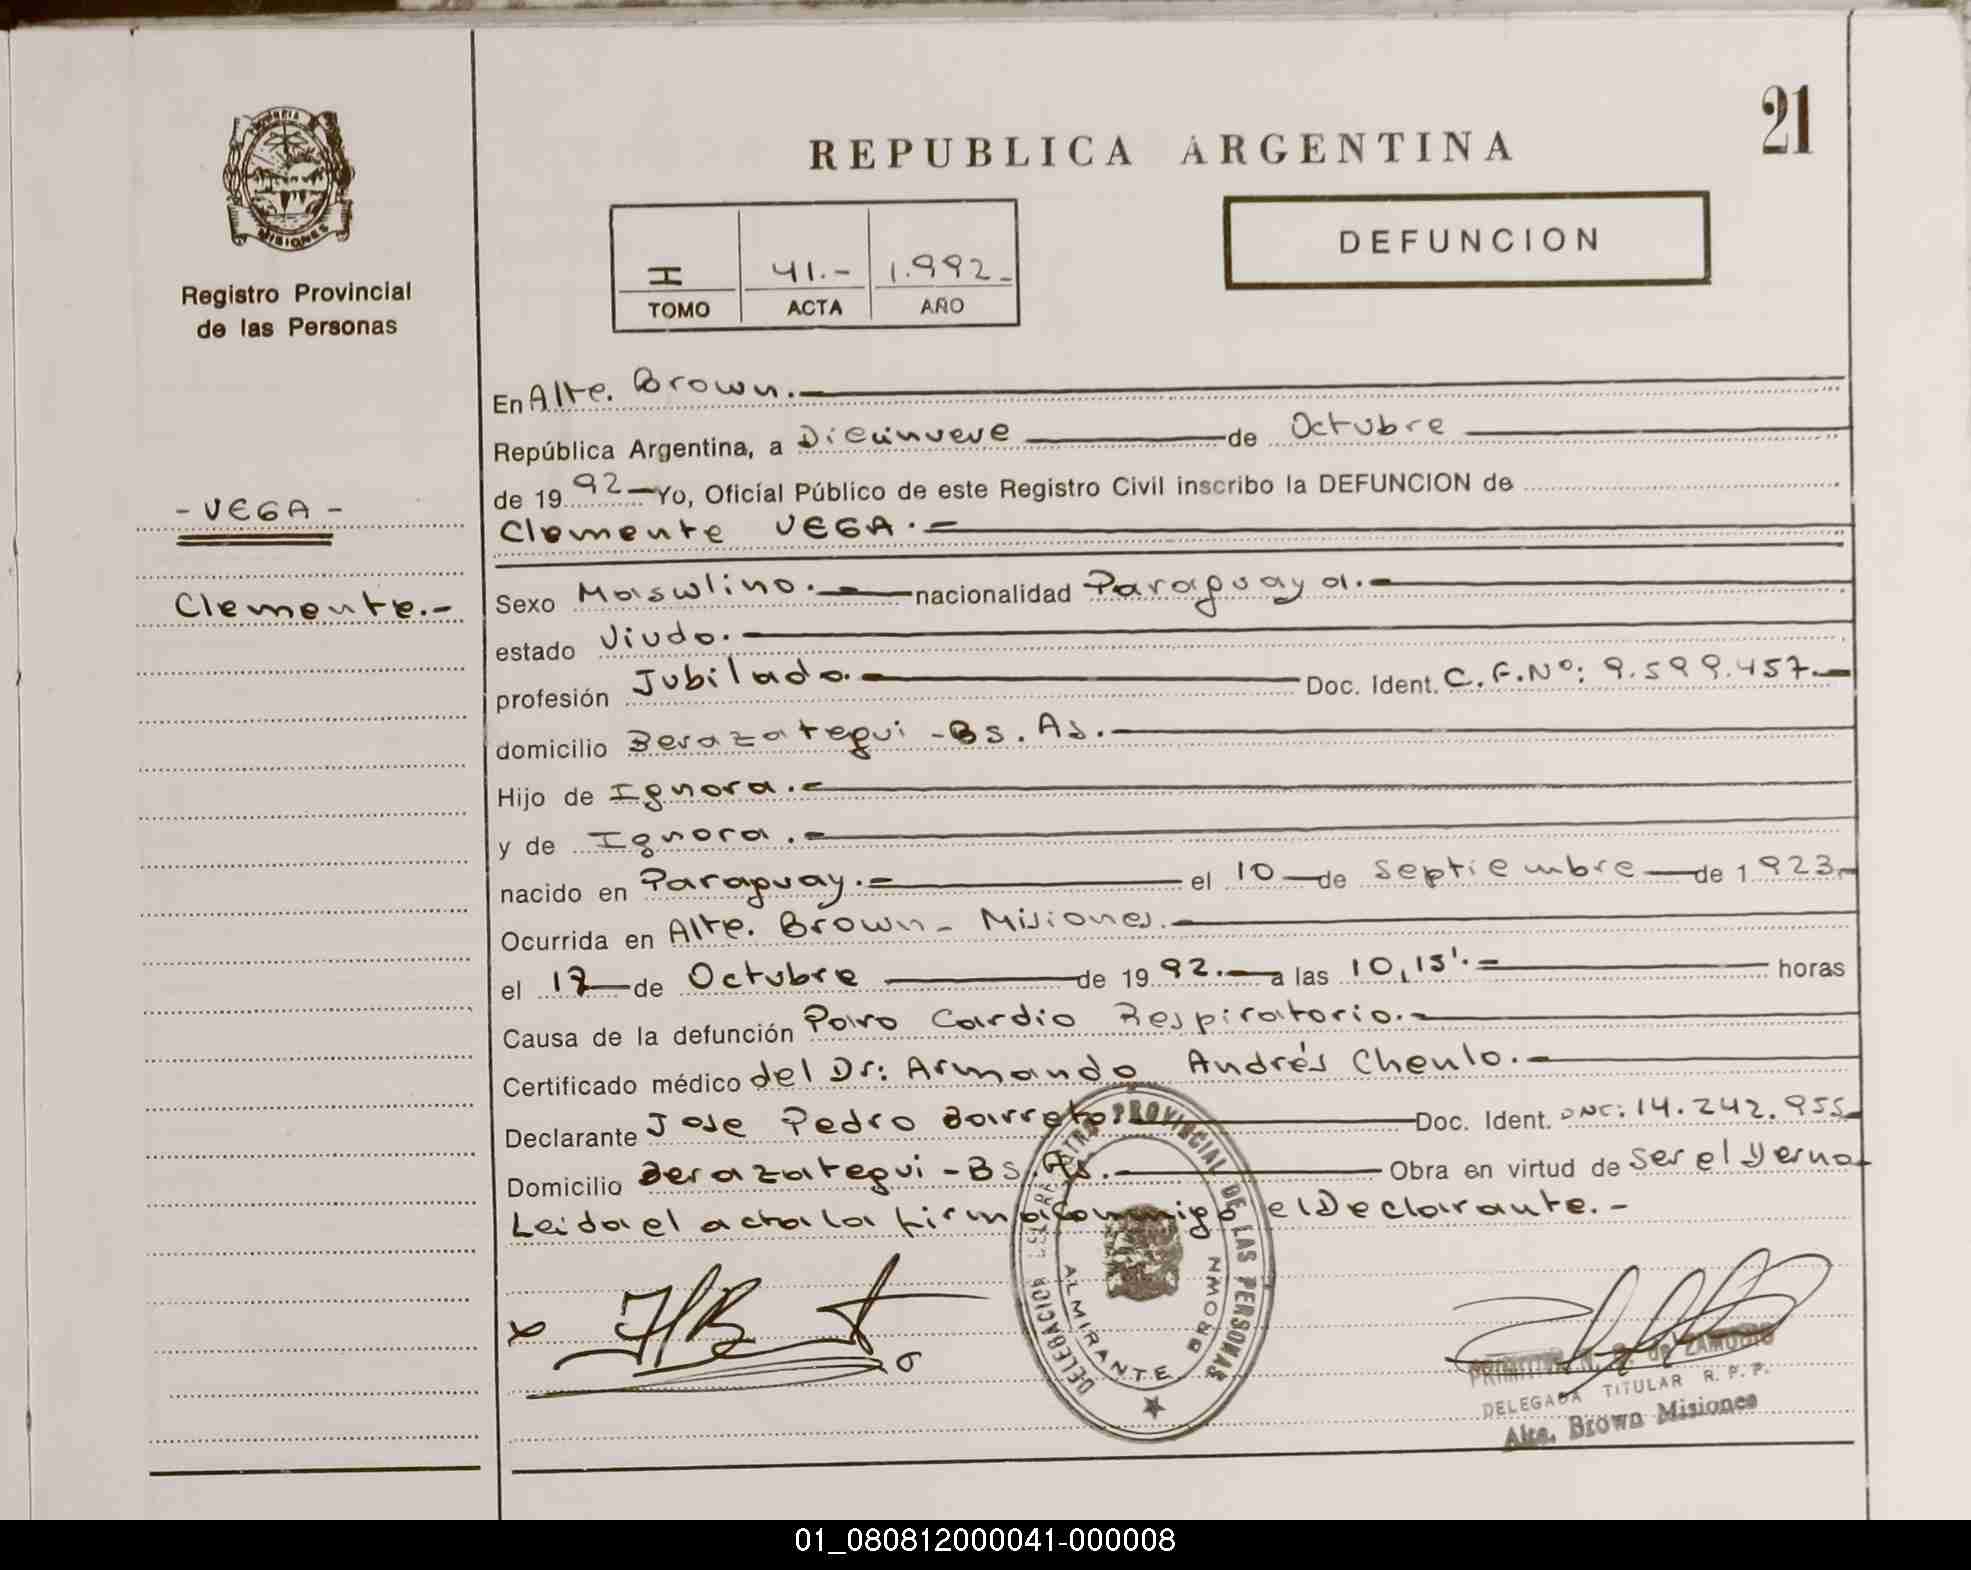 21
REPUBLICA ARGENTINA
DEFUNCION
MISIONES
Registro Provincial
de las Personas
I 41.- 1.992-
TOMO ACTA AÑO
En Alte. Brown.
República Argentina, a Diecinueve de Octubre
de 19 92 Yo, Oficial Público de este Registro Civil inscribo la DEFUNCION de
- VEGA -
Clemente VEGA.-
Clemente.-
Sexo Masculino. nacionalidad Paraguaya.
estado Viudo.
profesión Jubilado. Doc. Ident. C.F.Nº: 9.599.457.
domicilio Berazategui - Bs. As.
Hijo de Ignora.
y de Ignora.
nacido en Paraguay. el 10 de Septiembre de 1.923
Ocurrida en Alte. Brown - Misiones.
el 17 de Octubre de 19 92. a las 10,15'. horas
Causa de la defunción Paro Cardio Respiratorio.
Certificado médico del Dr: Armando Andrés Chenlo.
Declarante Jose Pedro Barreto. Doc. Ident. DNI: 14.242.955
Domicilio Berazategui - Bs. As. Obra en virtud de ser el Yerno
Leida el acta la firma conmigo el Declarante.-
DELEGACION REGISTRO PROVINCIAL DE LAS PERSONAS
ALMIRANTE BROWN
de ZAMUDIO
DELEGADA TITULAR R. P. P.
Alte. Brown Misiones
01_080812000041-000008